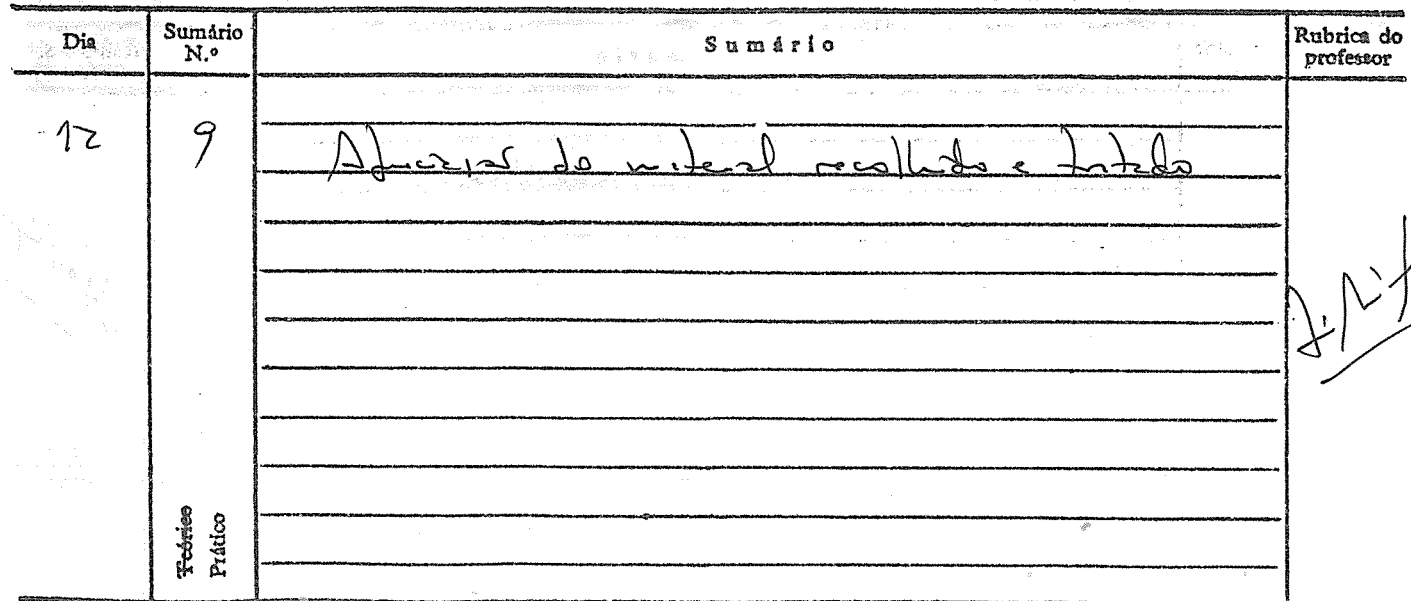 Dia Sumário N.º Sumário Rubrica do professor
12 9 do material recolhido e tratado
Teórico
Prático